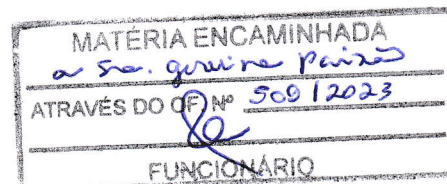 MATÉRIA ENCAMINHADA
a Sra. Paixão
ATRAVÉS DO OF Nº 509 / 2023
FUNCIONÁRIO